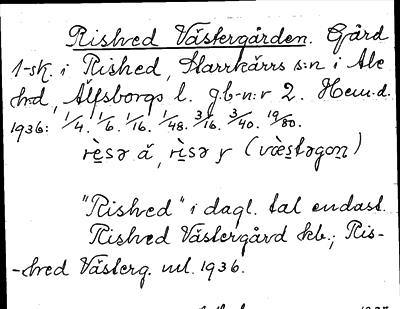 Rishved Västergården. Gård
1-sk. i Rished, Starrkärrs s:n i Ale
hrd, Älfsborgs l. g.b-n:r 2. Hem.d.
1936: 1/4. 1/6. 1/16. 1/48. 3/16. 3/40. 19/80.
rèsə ǎ, rìsə y (væ̀stəgon)
"Rishved" i dagl. tal endast.
Rishved Västergård kb.; Ris-
-hved Västerg. ml. 1936.